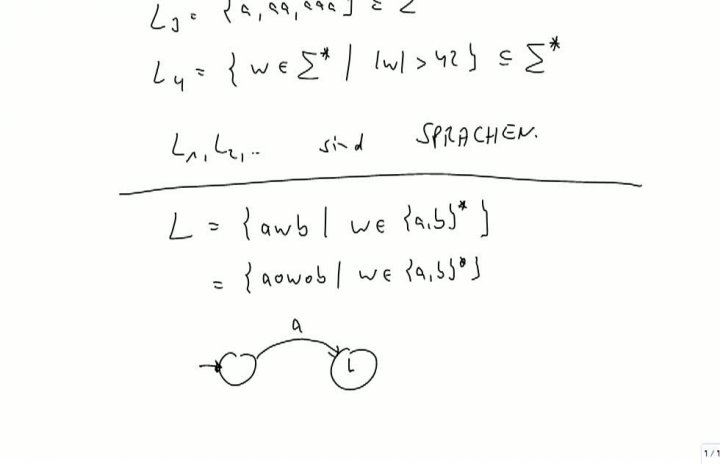 L₃ = {a, aa, aaa} ⊆ Σ
L₄ = {w ∈ Σ* | |w| > 42} ⊆ Σ*
L₁, L₂, .. sind SPRACHEN.
L = {awb | w ∈ {a,b}*}
= {a∘w∘b | w ∈ {a,b}*}
a
L
1/1